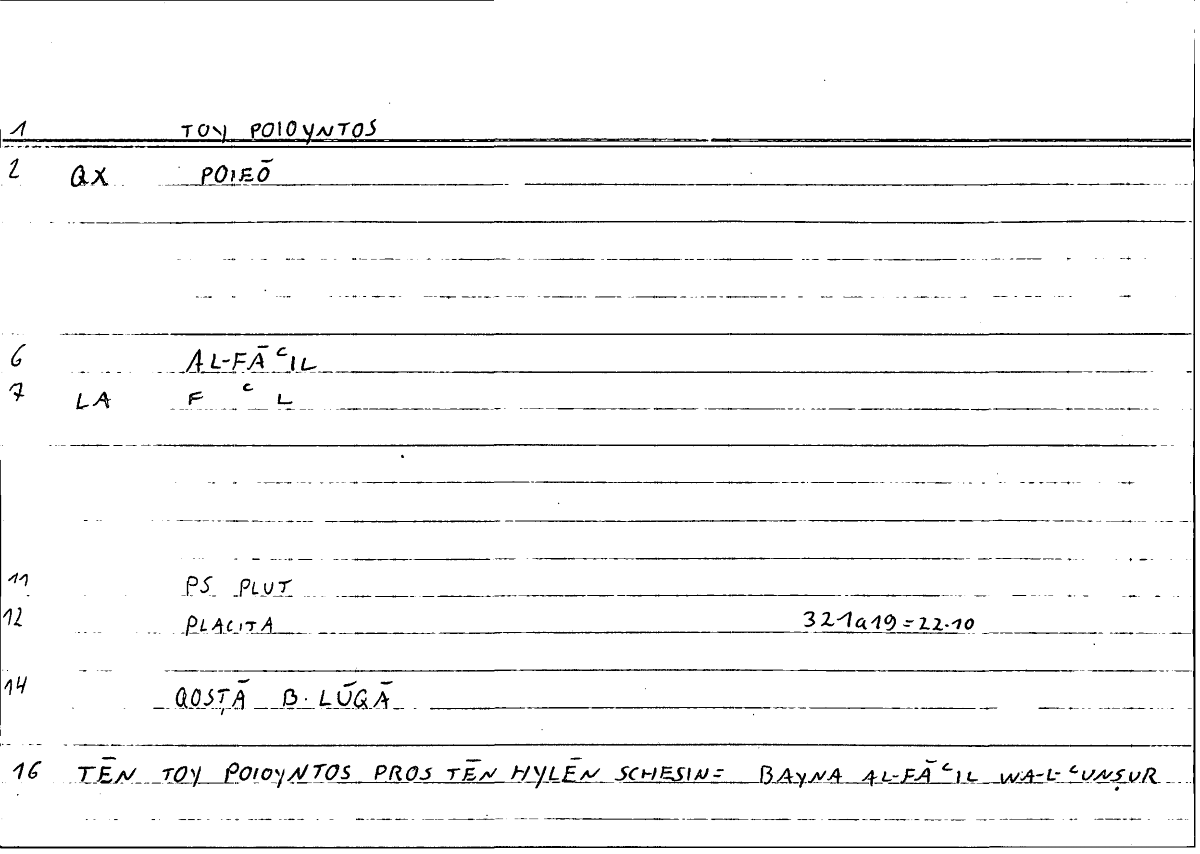 1 TOY POIOYNTOS
2 QX POIEŌ
6 AL-FĀʿIL
7 LA F ʿ L
11 PS PLUT
12 PLACITA 321a19=22.10
14 QOSṬĀ B. LŪQĀ
16 TĒN TOY POIOYNTOS PROS TĒN HYLĒN SCHESIN= BAYNA AL-FĀʿIL WA-L-ʿUNṢUR